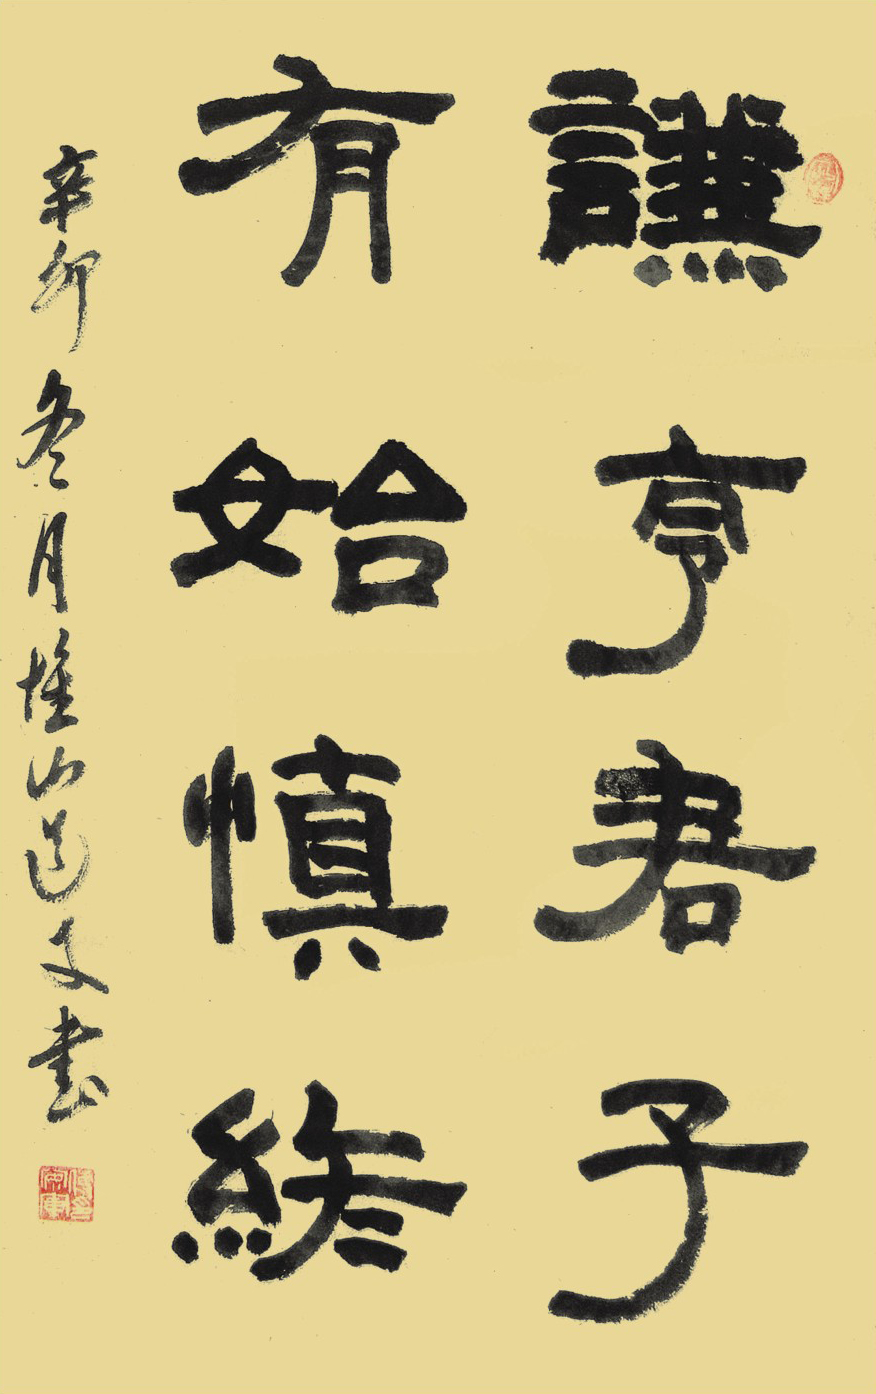 謙亨君子
有始慎終
辛卯冬月權山道文書